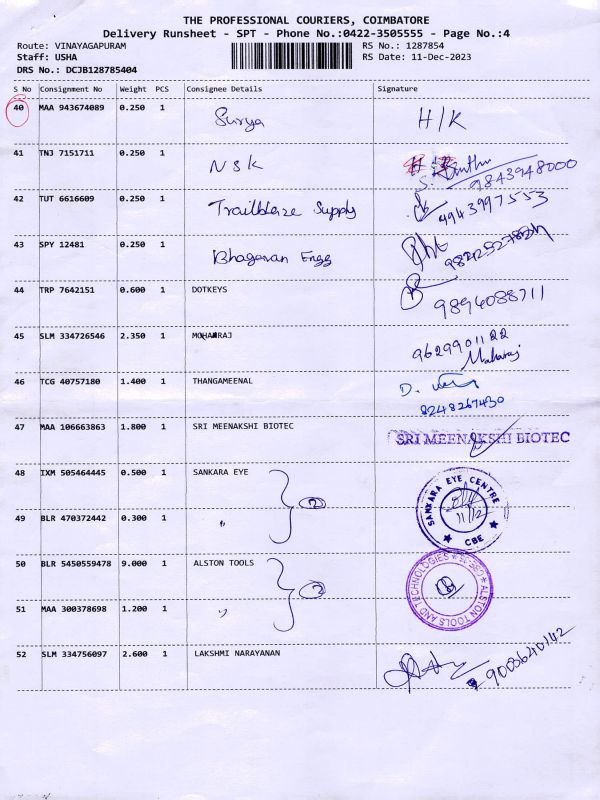 THE PROFESSIONAL COURIERS, COIMBATORE
Delivery Runsheet - SPT - Phone No.:0422-3505555 - Page No.:4
Route: VINAYAGAPURAM RS No.: 1287854
Staff: USHA RS Date: 11-Dec-2023
DRS No.: DCJB128785404
S No Consignment No Weight PCS Consignee Details Signature
40 MAA 943674089 0.250 1 Surya H/K
41 TNJ 7151711 0.250 1 NSK 9843948000
42 TUT 6616609 0.250 1 Trailblaze Supply 4943997553
43 SPY 12481 0.250 1 Bhagavan Engg
44 TRP 7642151 0.600 1 DOTKEYS 9894088711
45 SLM 334726546 2.350 1 MOHANRAJ 9629901122
Mohanraj
46 TCG 40757180 1.400 1 THANGAMEENAL D.
8248267430
47 MAA 106663863 1.800 1 SRI MEENAKSHI BIOTEC SRI MEENAKSHI BIOTEC
48 IXM 505464445 0.500 1 SANKARA EYE 2 SANKARA EYE CENTRE CBE 11/12
49 BLR 470372442 0.300 1 "
50 BLR 5450559478 9.000 1 ALSTON TOOLS 2 ALSTON TOOLS AND TECHNOLOGIES
51 MAA 300378698 1.200 1 "
52 SLM 334756097 2.600 1 LAKSHMI NARAYANAN 9003640142